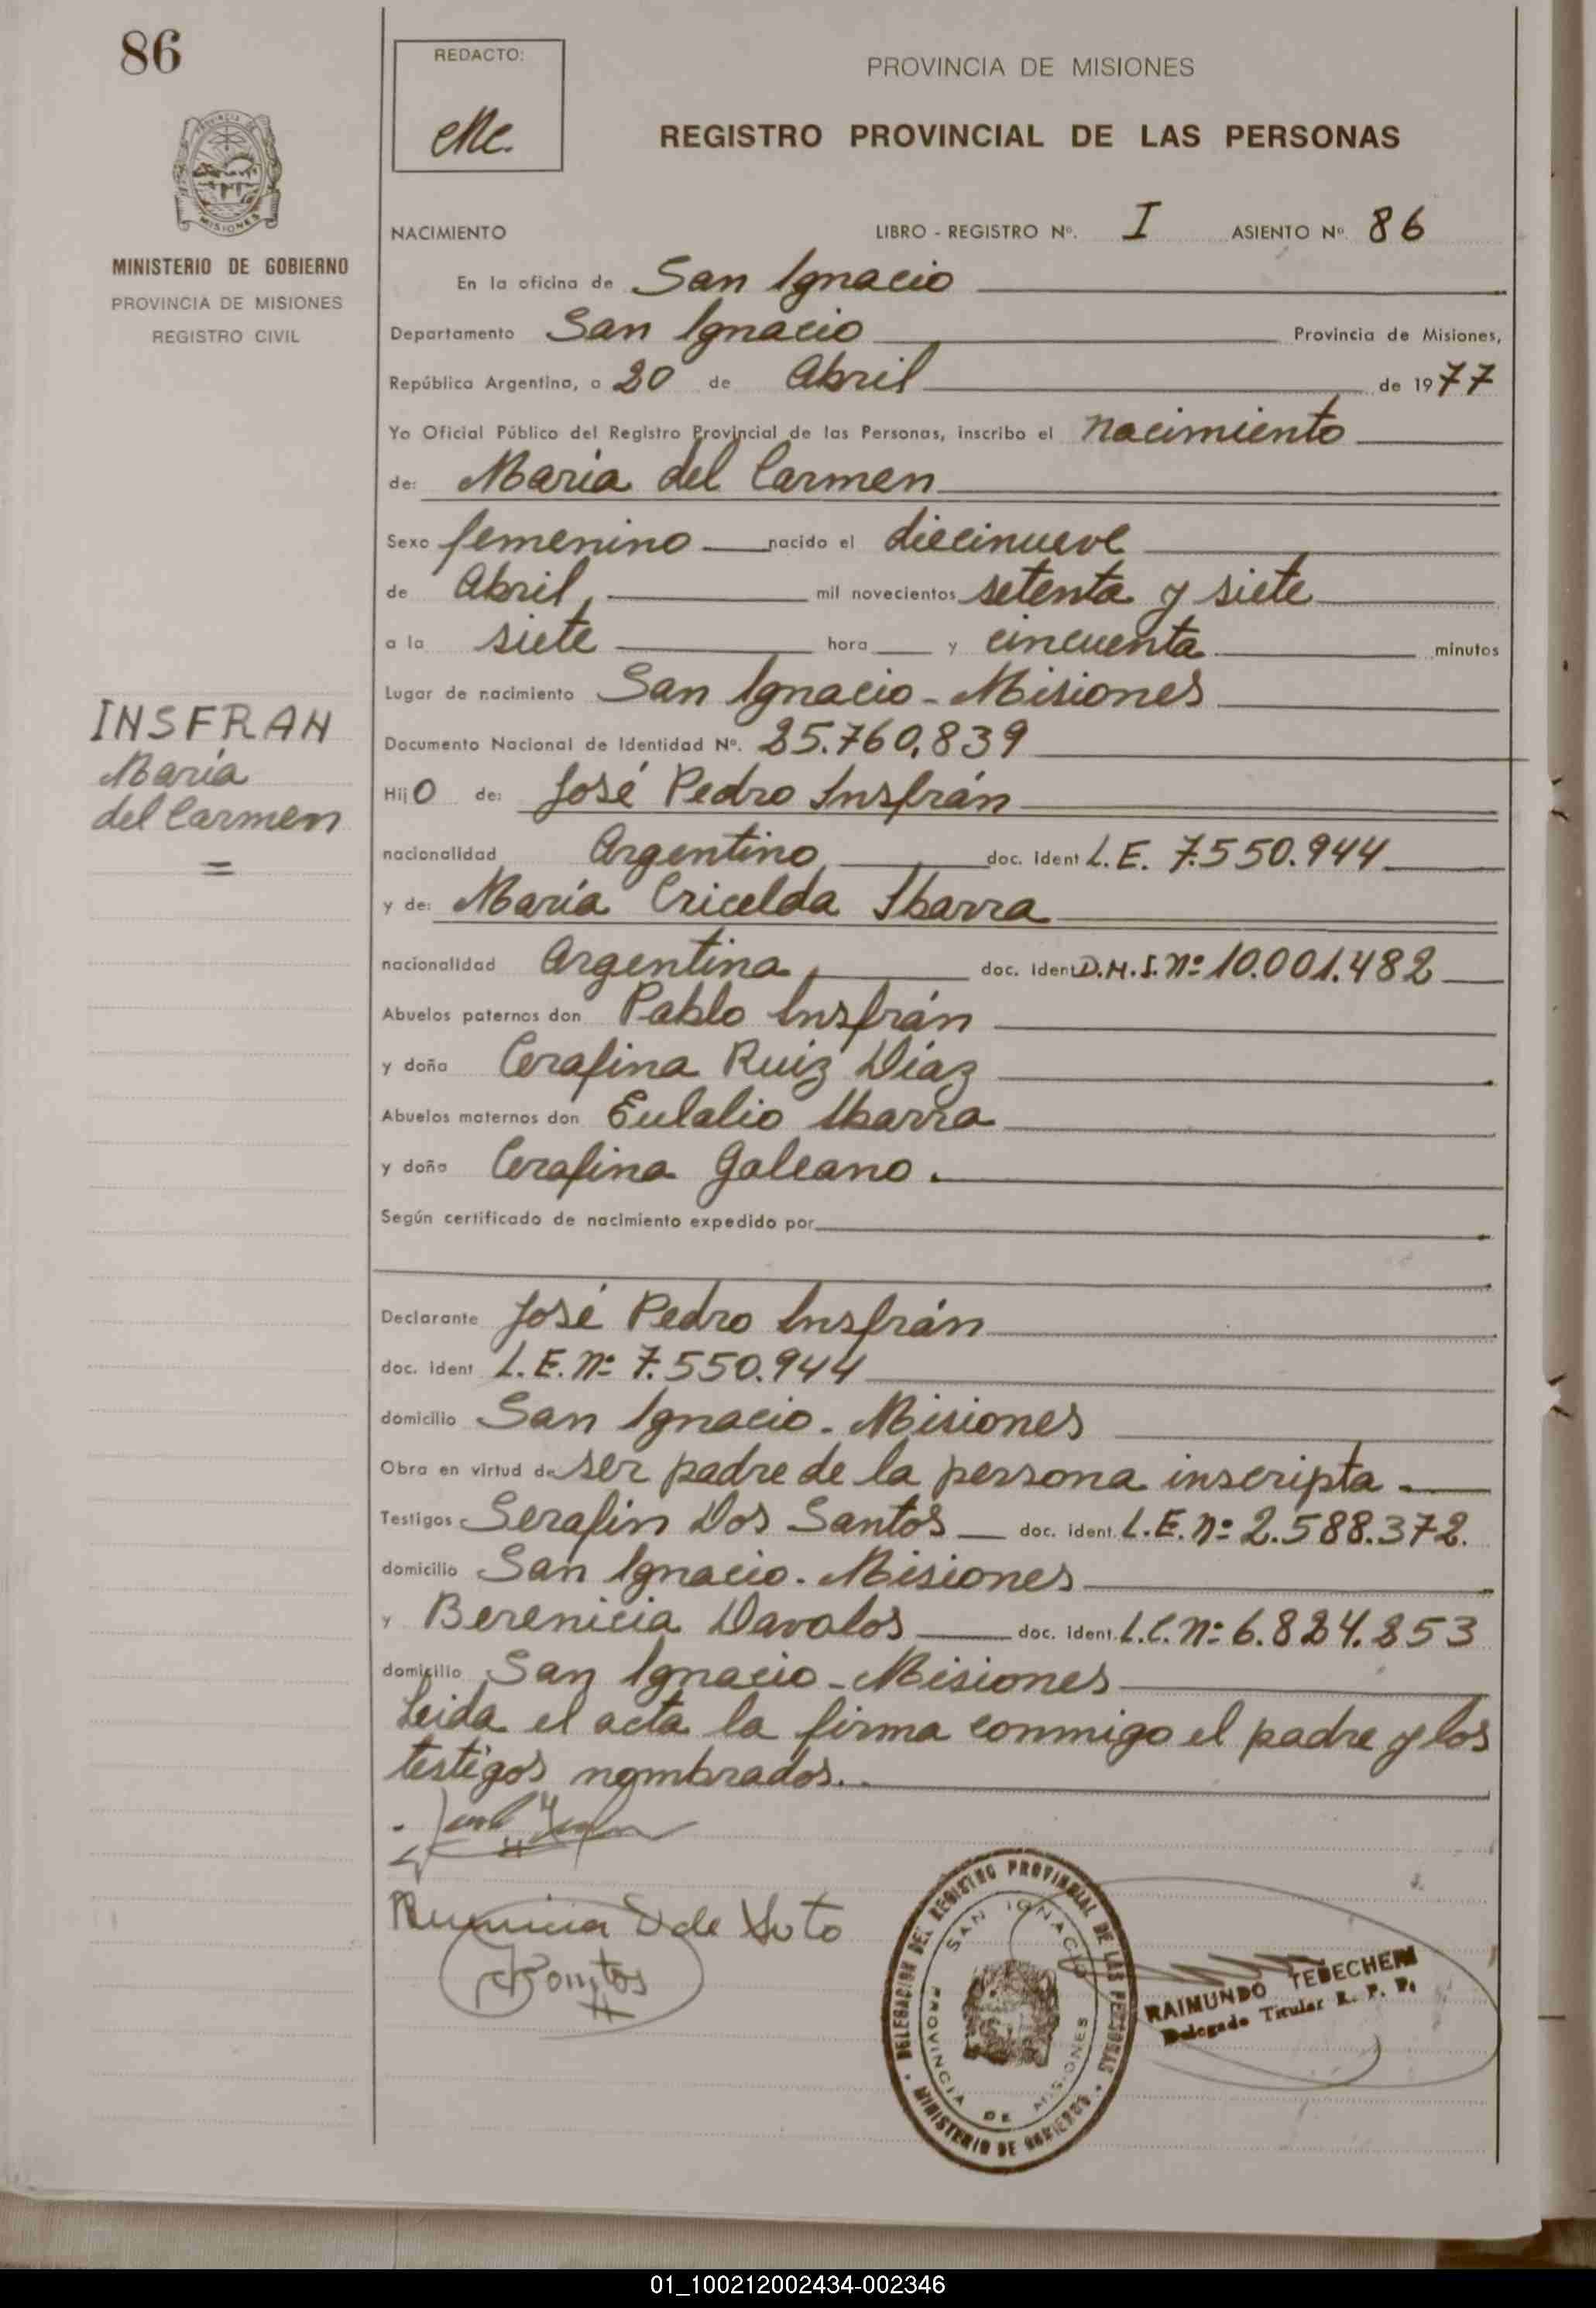 86
REDACTO:
PROVINCIA DE MISIONES
REGISTRO PROVINCIAL DE LAS PERSONAS
MISIONES
MINISTERIO DE GOBIERNO
PROVINCIA DE MISIONES
REGISTRO CIVIL
NACIMIENTO LIBRO - REGISTRO Nº. I ASIENTO Nº. 86
En la oficina de San Ignacio
Departamento San Ignacio Provincia de Misiones,
República Argentina, a 20 de Abril de 1977
Yo Oficial Público del Registro Provincial de las Personas, inscribo el nacimiento
de: María del Carmen
Sexo femenino nacido el diecinueve
de Abril, mil novecientos setenta y siete
a la siete hora y cincuenta minutos
Lugar de nacimiento San Ignacio - Misiones
Documento Nacional de Identidad Nº. 25.760.839
INSFRAN
María
del Carmen
Hijo de: José Pedro Insfrán
nacionalidad Argentino, doc. ident L.E. 7.550.944
y de: María Cricelda Ibarra
nacionalidad Argentina, doc. ident D.N.I. nº 10.001.482
Abuelos paternos don Pablo Insfrán
y doña Cerafina Ruiz Díaz
Abuelos maternos don Eulalio Ibarra
y doña Cerafina Galeano.
Según certificado de nacimiento expedido por
Declarante José Pedro Insfrán
doc. ident L.E. nº 7.550.944
domicilio San Ignacio - Misiones
Obra en virtud de ser padre de la persona inscripta.
Testigos Serafin Dos Santos doc. ident. L.E. nº 2.588.372.
domicilio San Ignacio. Misiones
y Berenicia Davalos doc. ident. L.C. nº 6.824.253
domicilio San Ignacio - Misiones
Leida el acta la firma conmigo el padre y los
testigos nombrados.
D de Soto
DELEGACION DEL REGISTRO PROVINCIAL DE LAS PERSONAS
SAN IGNACIO
PROVINCIA DE MISIONES
MINISTERIO DE GOBIERNO
RAIMUNDO TEDECHEM
Delegado Titular R. P. P.
01_100212002434-002346